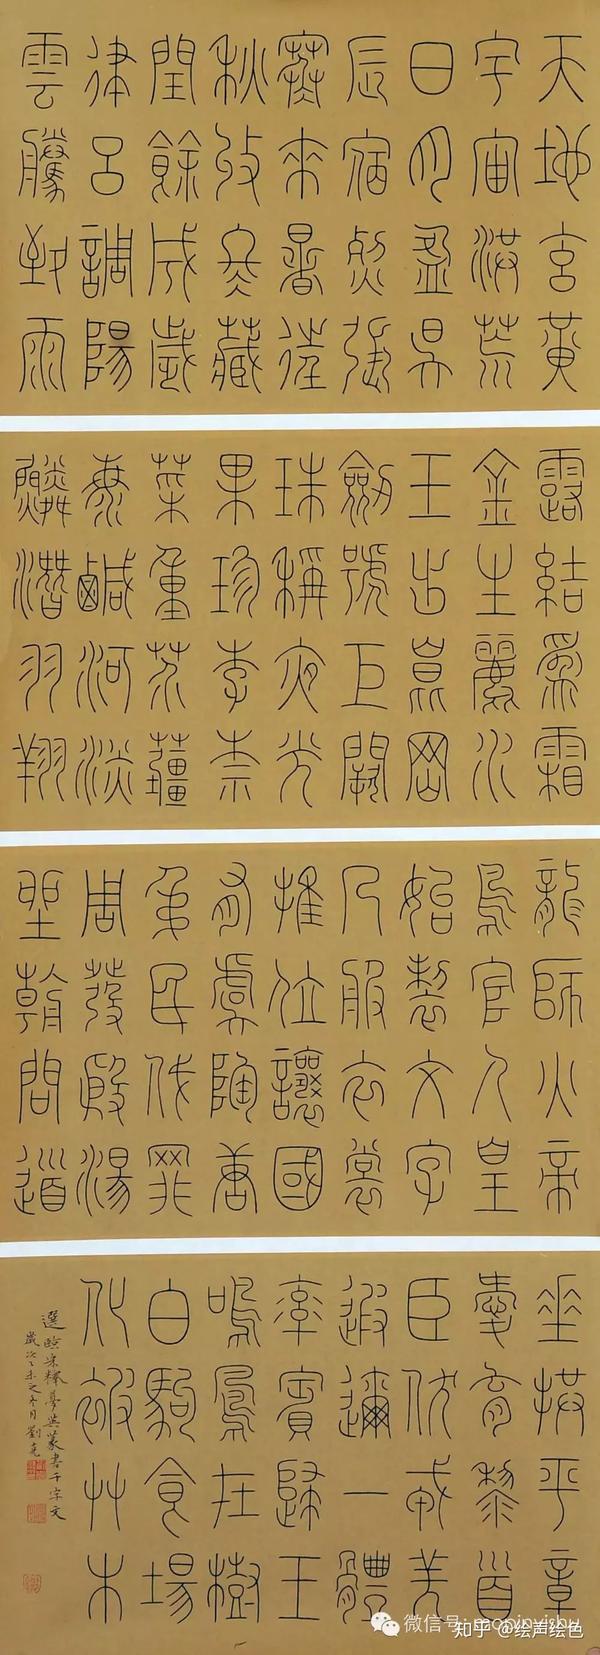 天地玄黃
宇宙洪荒
日月盈昃
辰宿列張
寒來暑往
秋收冬藏
閏餘成歲
律呂調陽
雲騰致雨
露結為霜
金生麗水
玉出崑岡
劍號巨闕
珠稱夜光
果珍李柰
菜重芥薑
海鹹河淡
鱗潛羽翔
龍師火帝
鳥官人皇
始製文字
乃服衣裳
推位讓國
有虞陶唐
弔民伐罪
周發殷湯
坐朝問道
垂拱平章
愛育黎首
臣伏戎羌
遐邇一體
率賓歸王
鳴鳳在樹
白駒食場
化被草木
選臨宋釋夢英篆書千字文
歲次乙未之冬月劉
微信号: mopinyishu
知乎 @绘声绘色